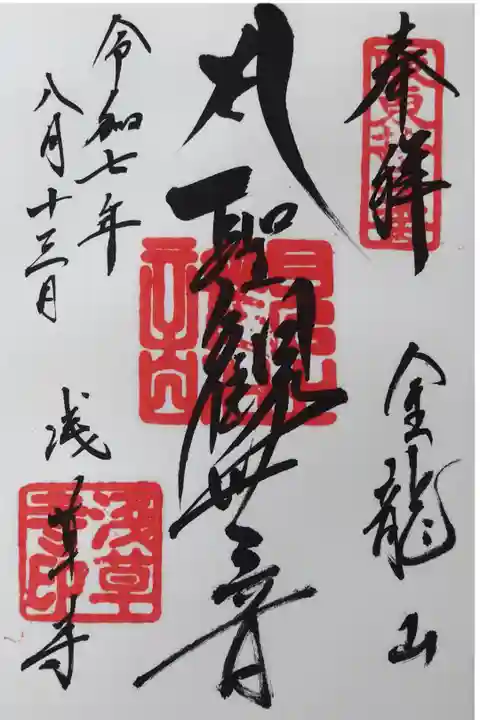 奉拝
金龍山
聖観世音
令和七年
八月十三日
浅草寺
浅草寺印